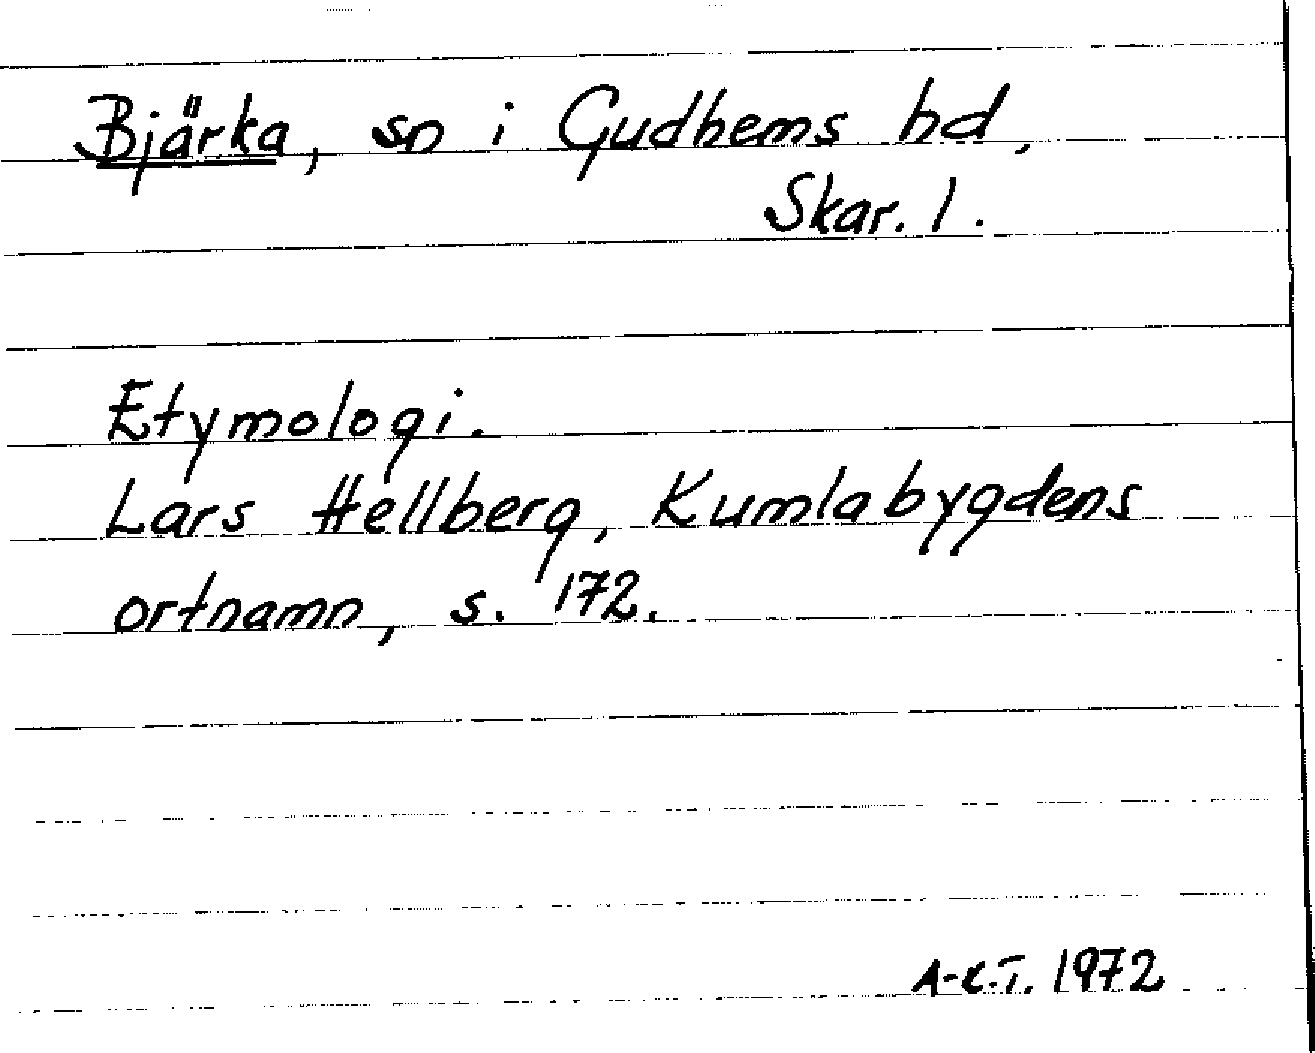 Bjärka, sn i Gudhems hd,
Skar. l.
Etymologi.
Lars Hellberg, Kumlabygdens
ortnamn, s. 172.
A-C.T. 1972